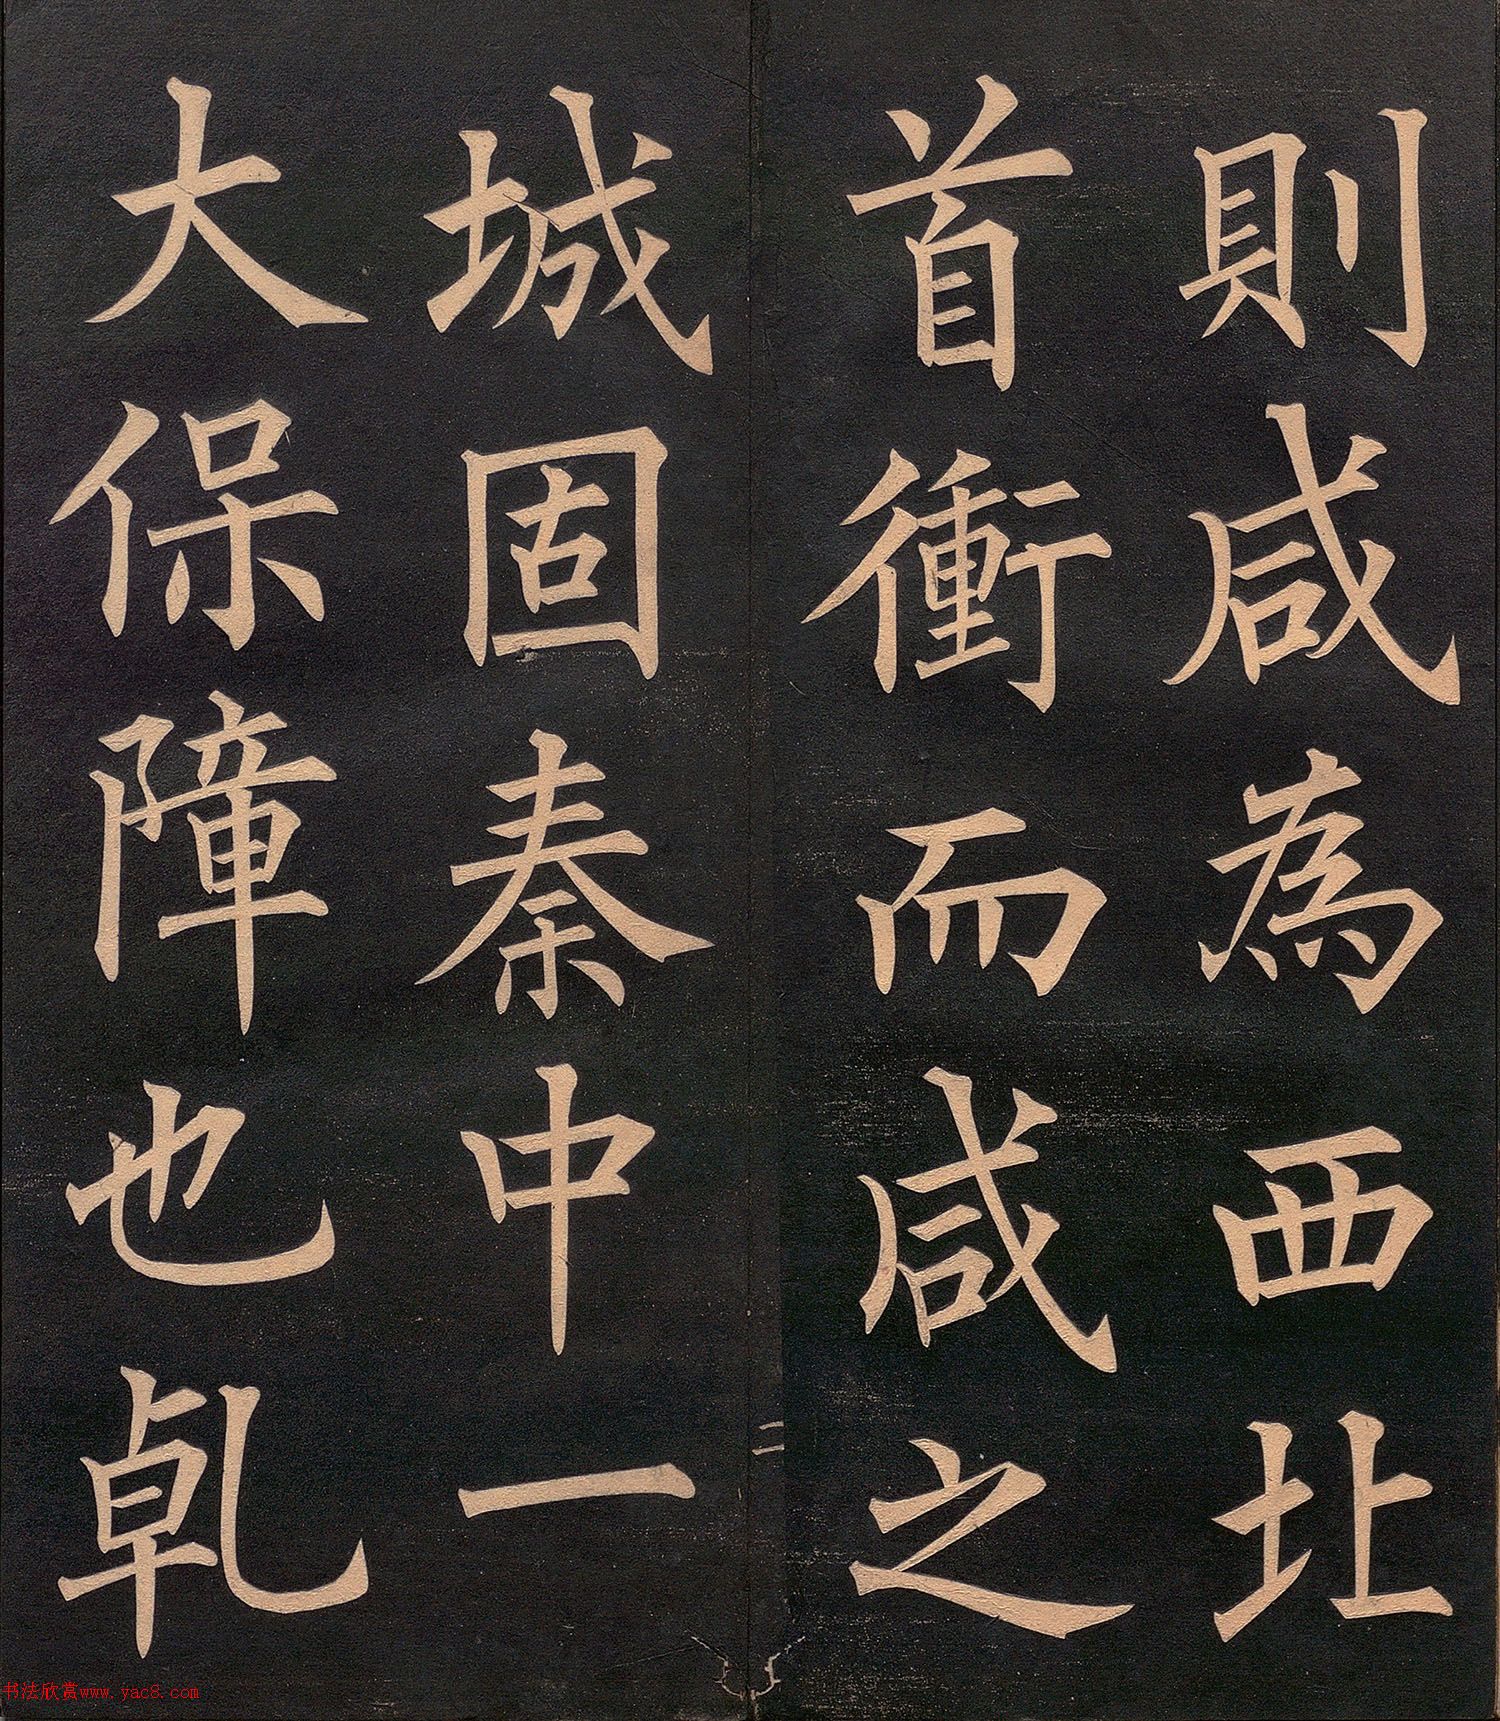 則咸為西北
首衝而咸之
城固秦中一
大保障也乹
二
书法欣赏www.yac8.com